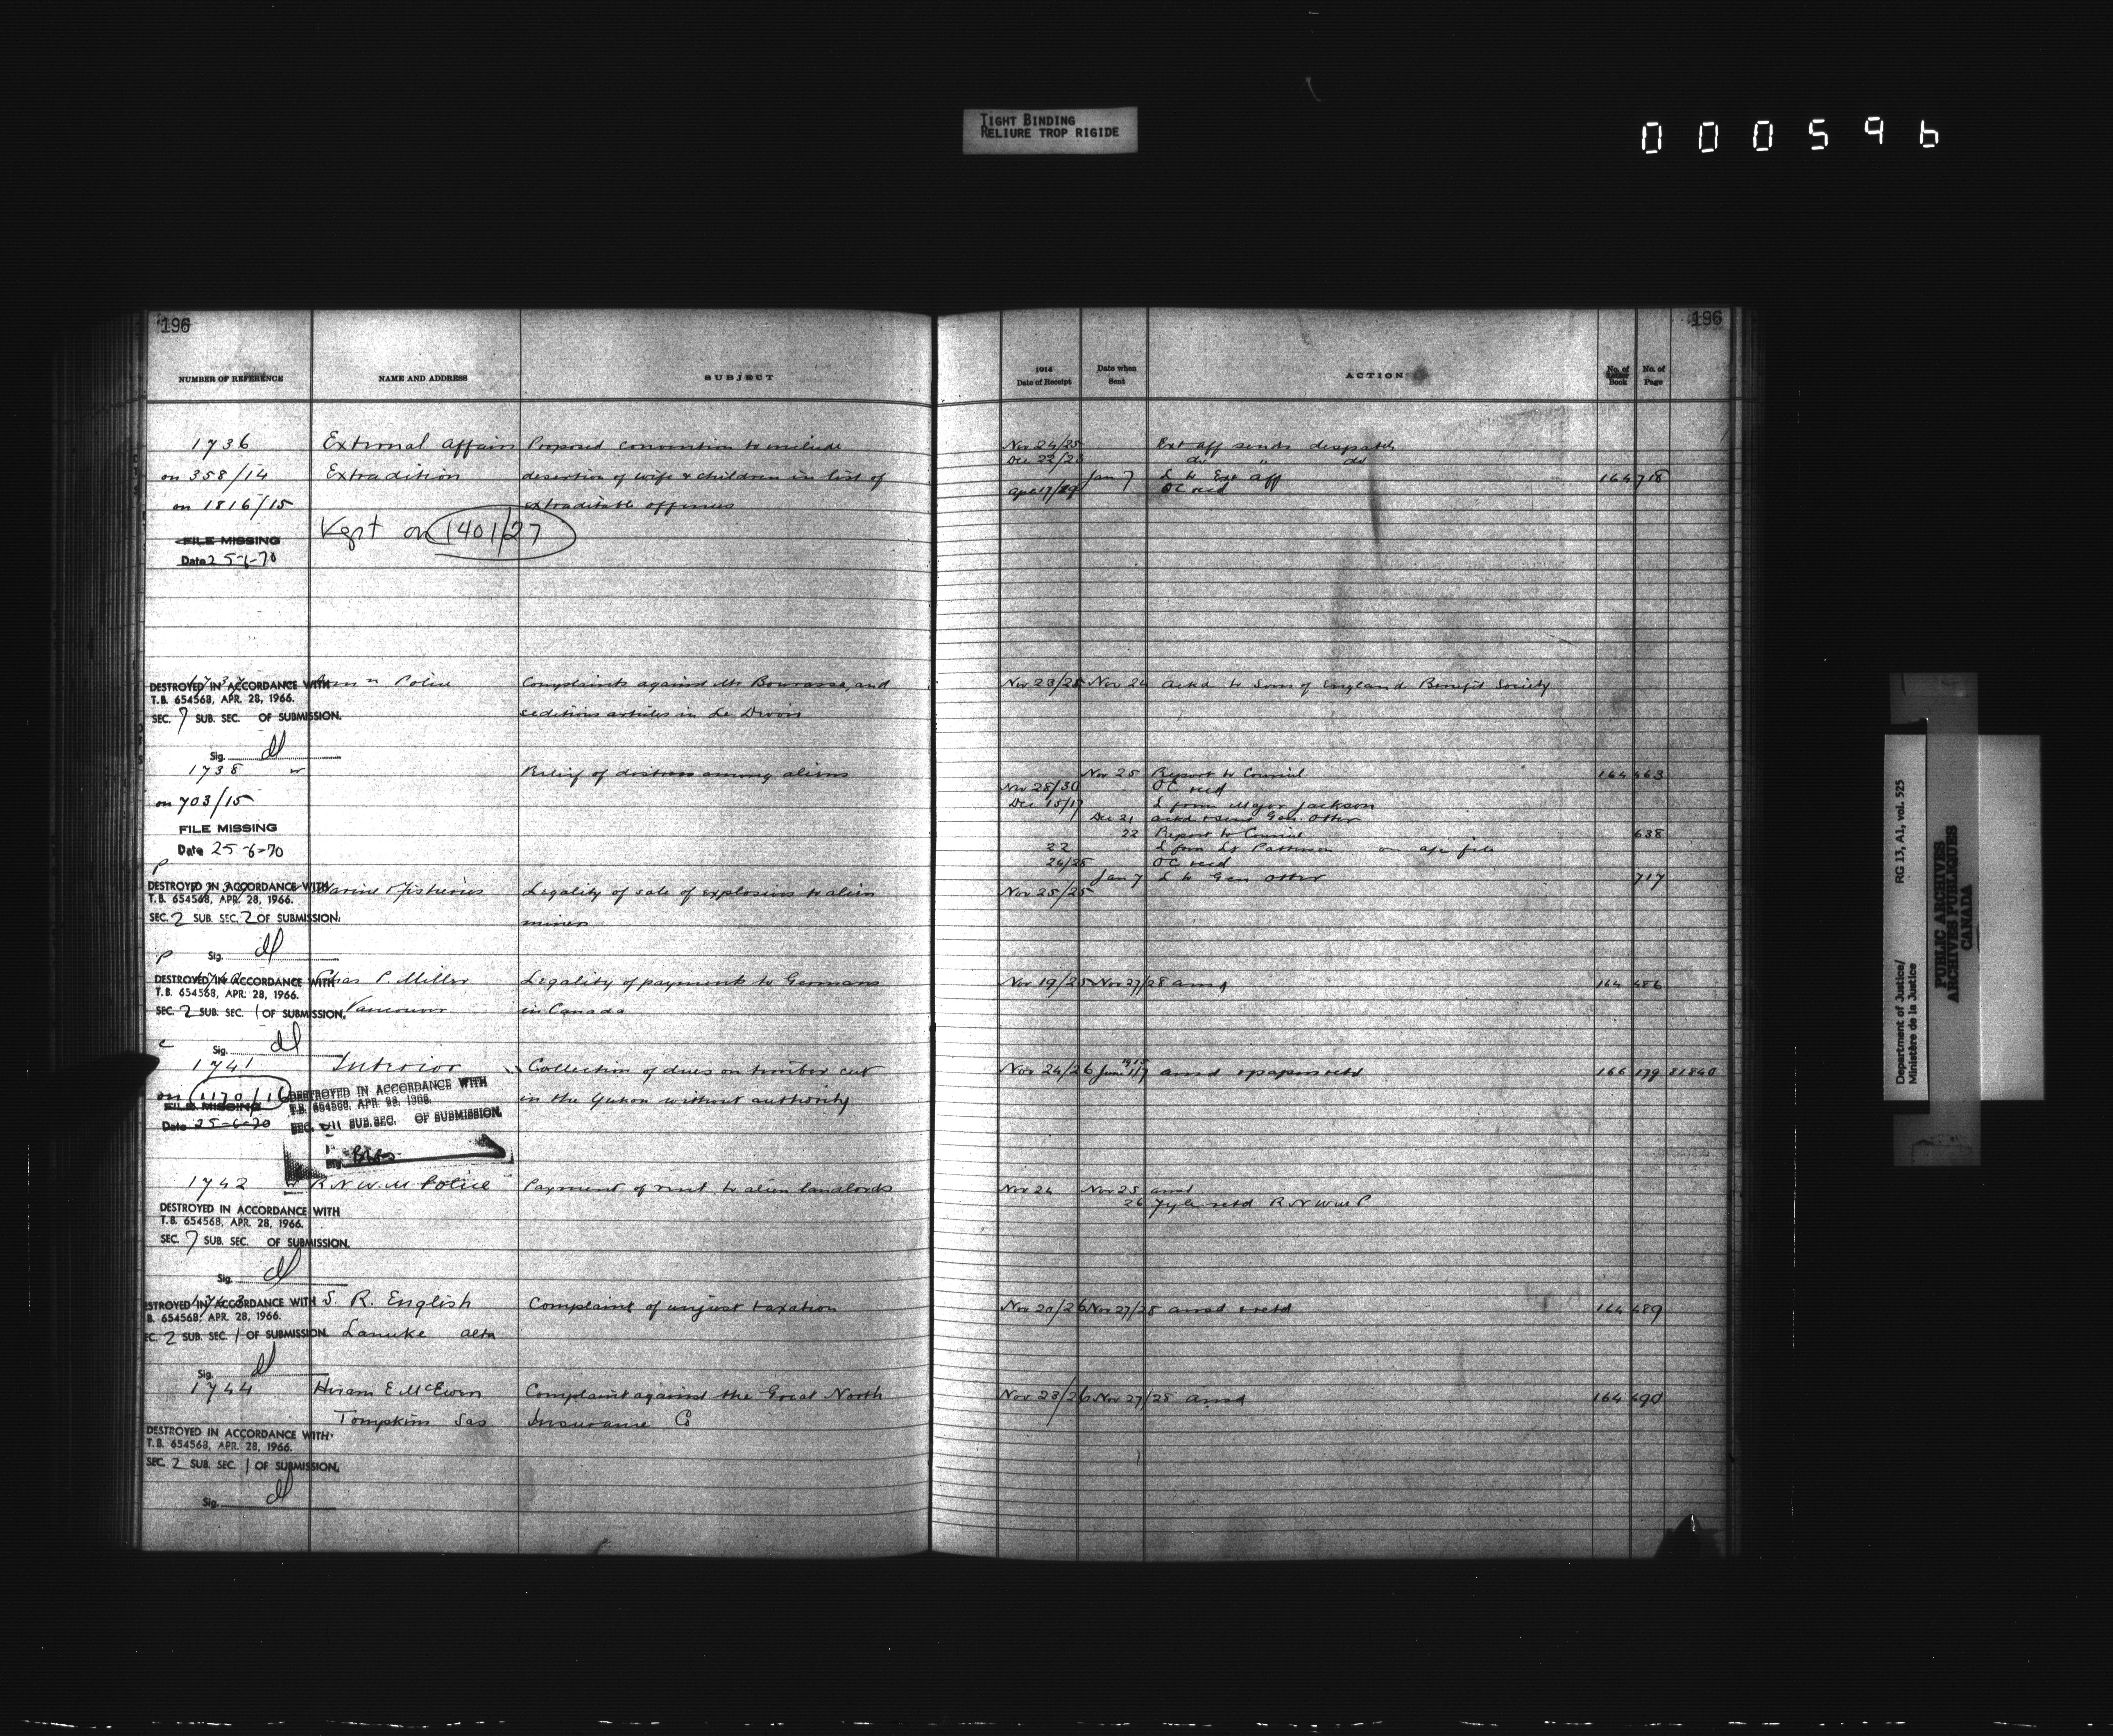 TIGHT BINDING
RELIURE TROP RIGIDE
000596
196
NUMBER OF REFERENCE NAME AND ADDRESS SUBJECT
1736 External Affairs Proposed convention to include
on 358/14 Extradition desertion of wife & children in list of
on 1816/15 extraditable offences
Kept on 1401/27
FILE MISSING
Date 25-6-70
DESTROYED IN ACCORDANCE WITH Police Complaints against Mr Bourassa, and
T.B. 654568, APR. 28, 1966.
SEC. 7 SUB. SEC. OF SUBMISSION. seditious articles in Le Devoir
Sig.
1738 Relief of distress among aliens
on 703/15
FILE MISSING
Date 25-6-70
P
DESTROYED IN ACCORDANCE WITH Marine & Fisheries Legality of sale of explosives to alien
T.B. 654568, APR. 28, 1966.
SEC. 2 SUB. SEC. 2 OF SUBMISSION. miners
P Sig.
DESTROYED IN ACCORDANCE WITH Chas P. Miller Legality of payments to Germans
T.B. 654568, APR. 28, 1966.
SEC. 2 SUB. SEC. 1 OF SUBMISSION. Vancouver in Canada
Sig.
1741 Interior Collection of dues on timber cut
on 1170/16 in the Yukon without authority
FILE MISSING
Date 25-6-70
DESTROYED IN ACCORDANCE WITH
T.B. 654568, APR. 28, 1966.
SEC. SUB. SEC. OF SUBMISSION.
1742 R.N.W.M Police Payment of rent to alien landlords
DESTROYED IN ACCORDANCE WITH
T.B. 654568, APR. 28, 1966.
SEC. 7 SUB. SEC. OF SUBMISSION.
Sig.
ESTROYED IN ACCORDANCE WITH S. R. English Complaint of unjust taxation
B. 654568, APR. 28, 1966.
EC. 2 SUB. SEC. 1 OF SUBMISSION. Lanuke Alta
Sig.
1744 Hiram E McEwen Complaint against the Great North
Tompkins Sas Insurance Co
DESTROYED IN ACCORDANCE WITH
T.B. 654568, APR. 28, 1966.
SEC. 2 SUB. SEC. 1 OF SUBMISSION.
Sig.
196
1914 Date of Receipt Date when Sent ACTION No. of Letter Book No. of Page
Nov 24/25 Ext Aff sends despatch
Dec 22/23 do " do
Jan 7 L to Ext Aff 164 718
Apl 17/19 OC recd
Nov 23/25 Nov 26 Ackd to Sons of England Benefit Society
Nov 25 Report to Council 164 463
Nov 28/30 OC recd
Dec 15/17 L from Major Jackson
Dec 21 ackd & sent Gen. Otter
22 Report to Council 638
22 L from Lt Patterson on ap file
26/28 OC recd
Jan 7 L to Gen Otter 717
Nov 25/25
Nov 19/25 Nov 27/28 ansd 164 486
Nov 24/26 June 1/7 1915 ansd & papers retd 166 179 81840
Nov 24 Nov 25 ansd
26 Fyle retd R N W M P
Nov 20/26 Nov 27/28 ansd & retd 164 489
Nov 23/26 Nov 27/28 ansd 164 490
Department of Justice/ RG 13, A1, vol. 525
Ministère de la Justice
PUBLIC ARCHIVES
ARCHIVES PUBLIQUES
CANADA